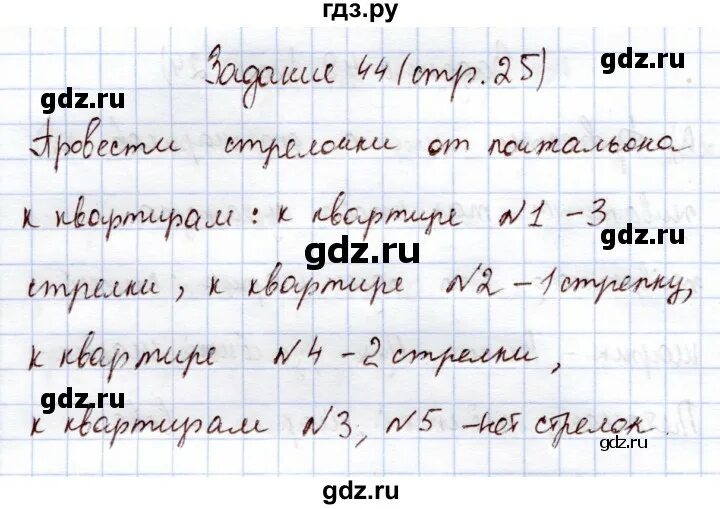 гдз.ру
Задание 44 (стр. 25)
gdz.ru
gdz.ru
Провести стрелочки от почтальона
к квартирам: к квартире №1 - 3
gdz.ru
стрелки, к квартире №2 - 1 стрелку,
к квартире №4 - 2 стрелки,
gdz.ru
к квартирам №3, №5 - нет стрелок.
gdz.ru
gdz.ru